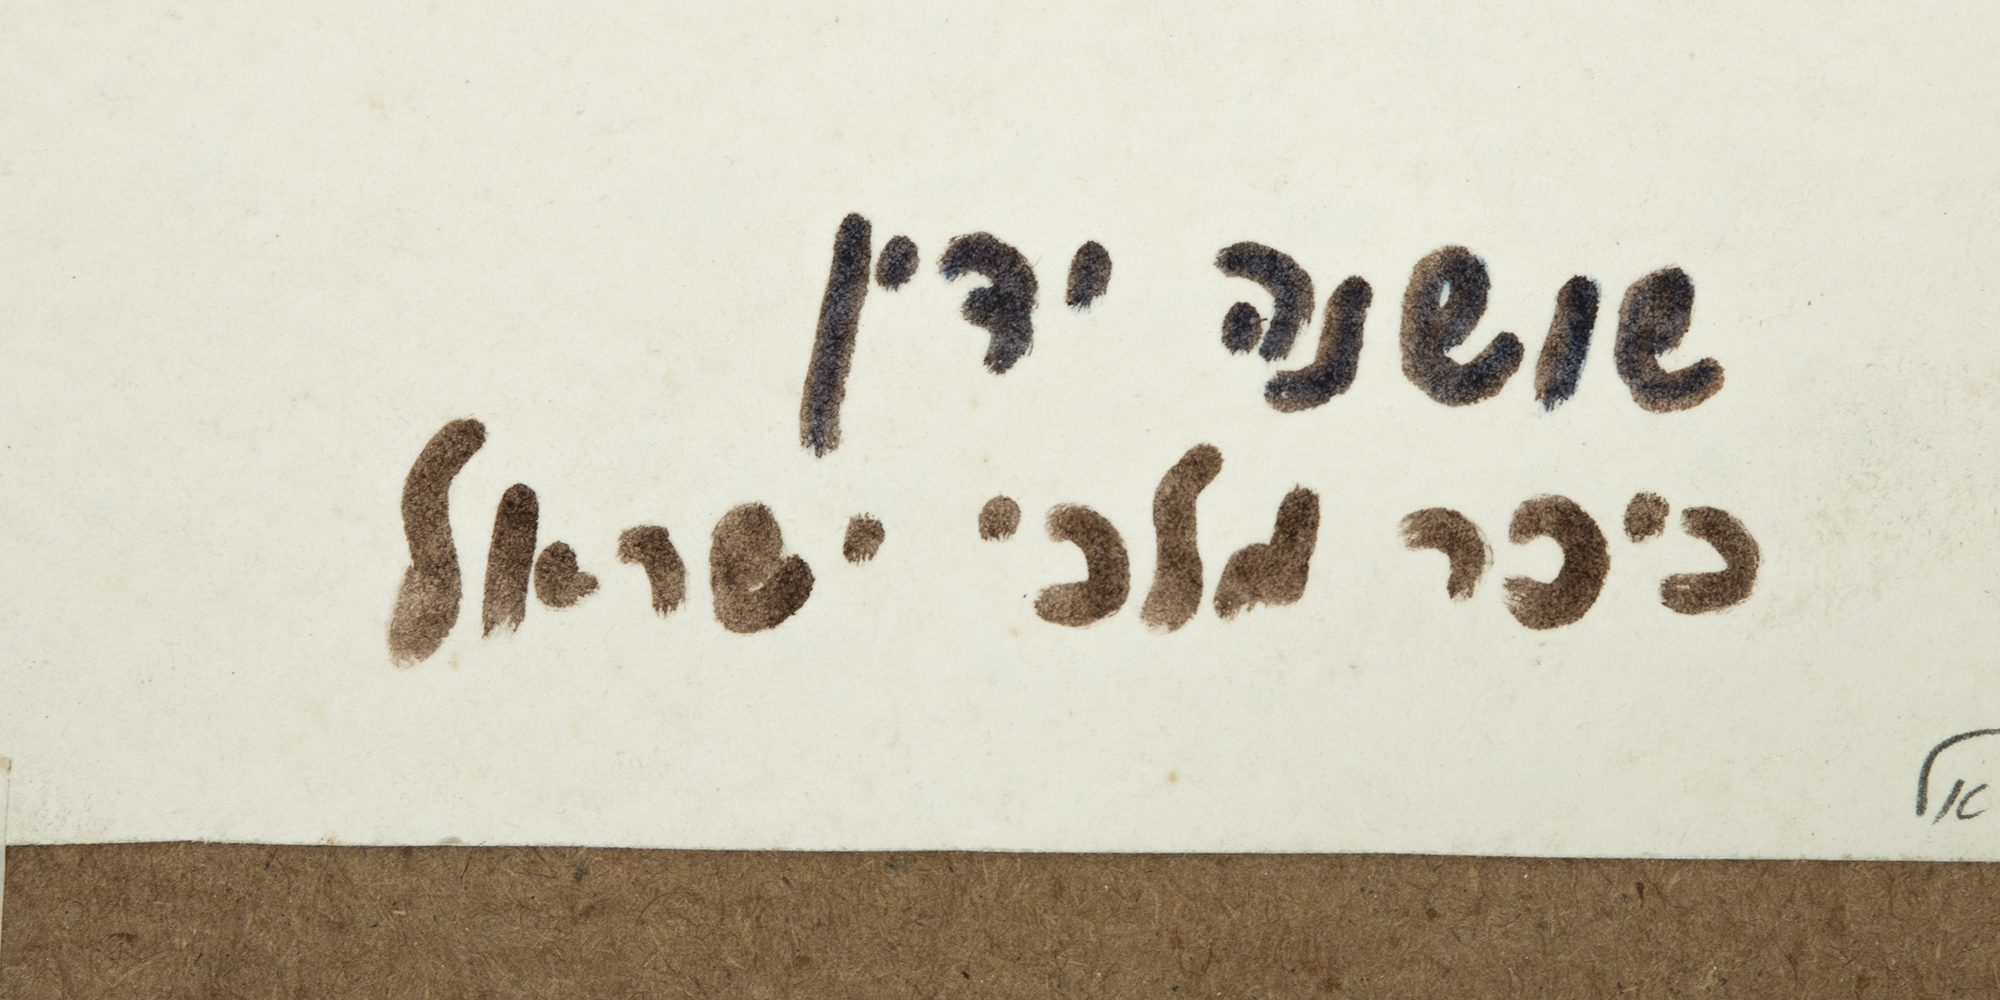 שושנה ידין
כיכר מלכי ישראל